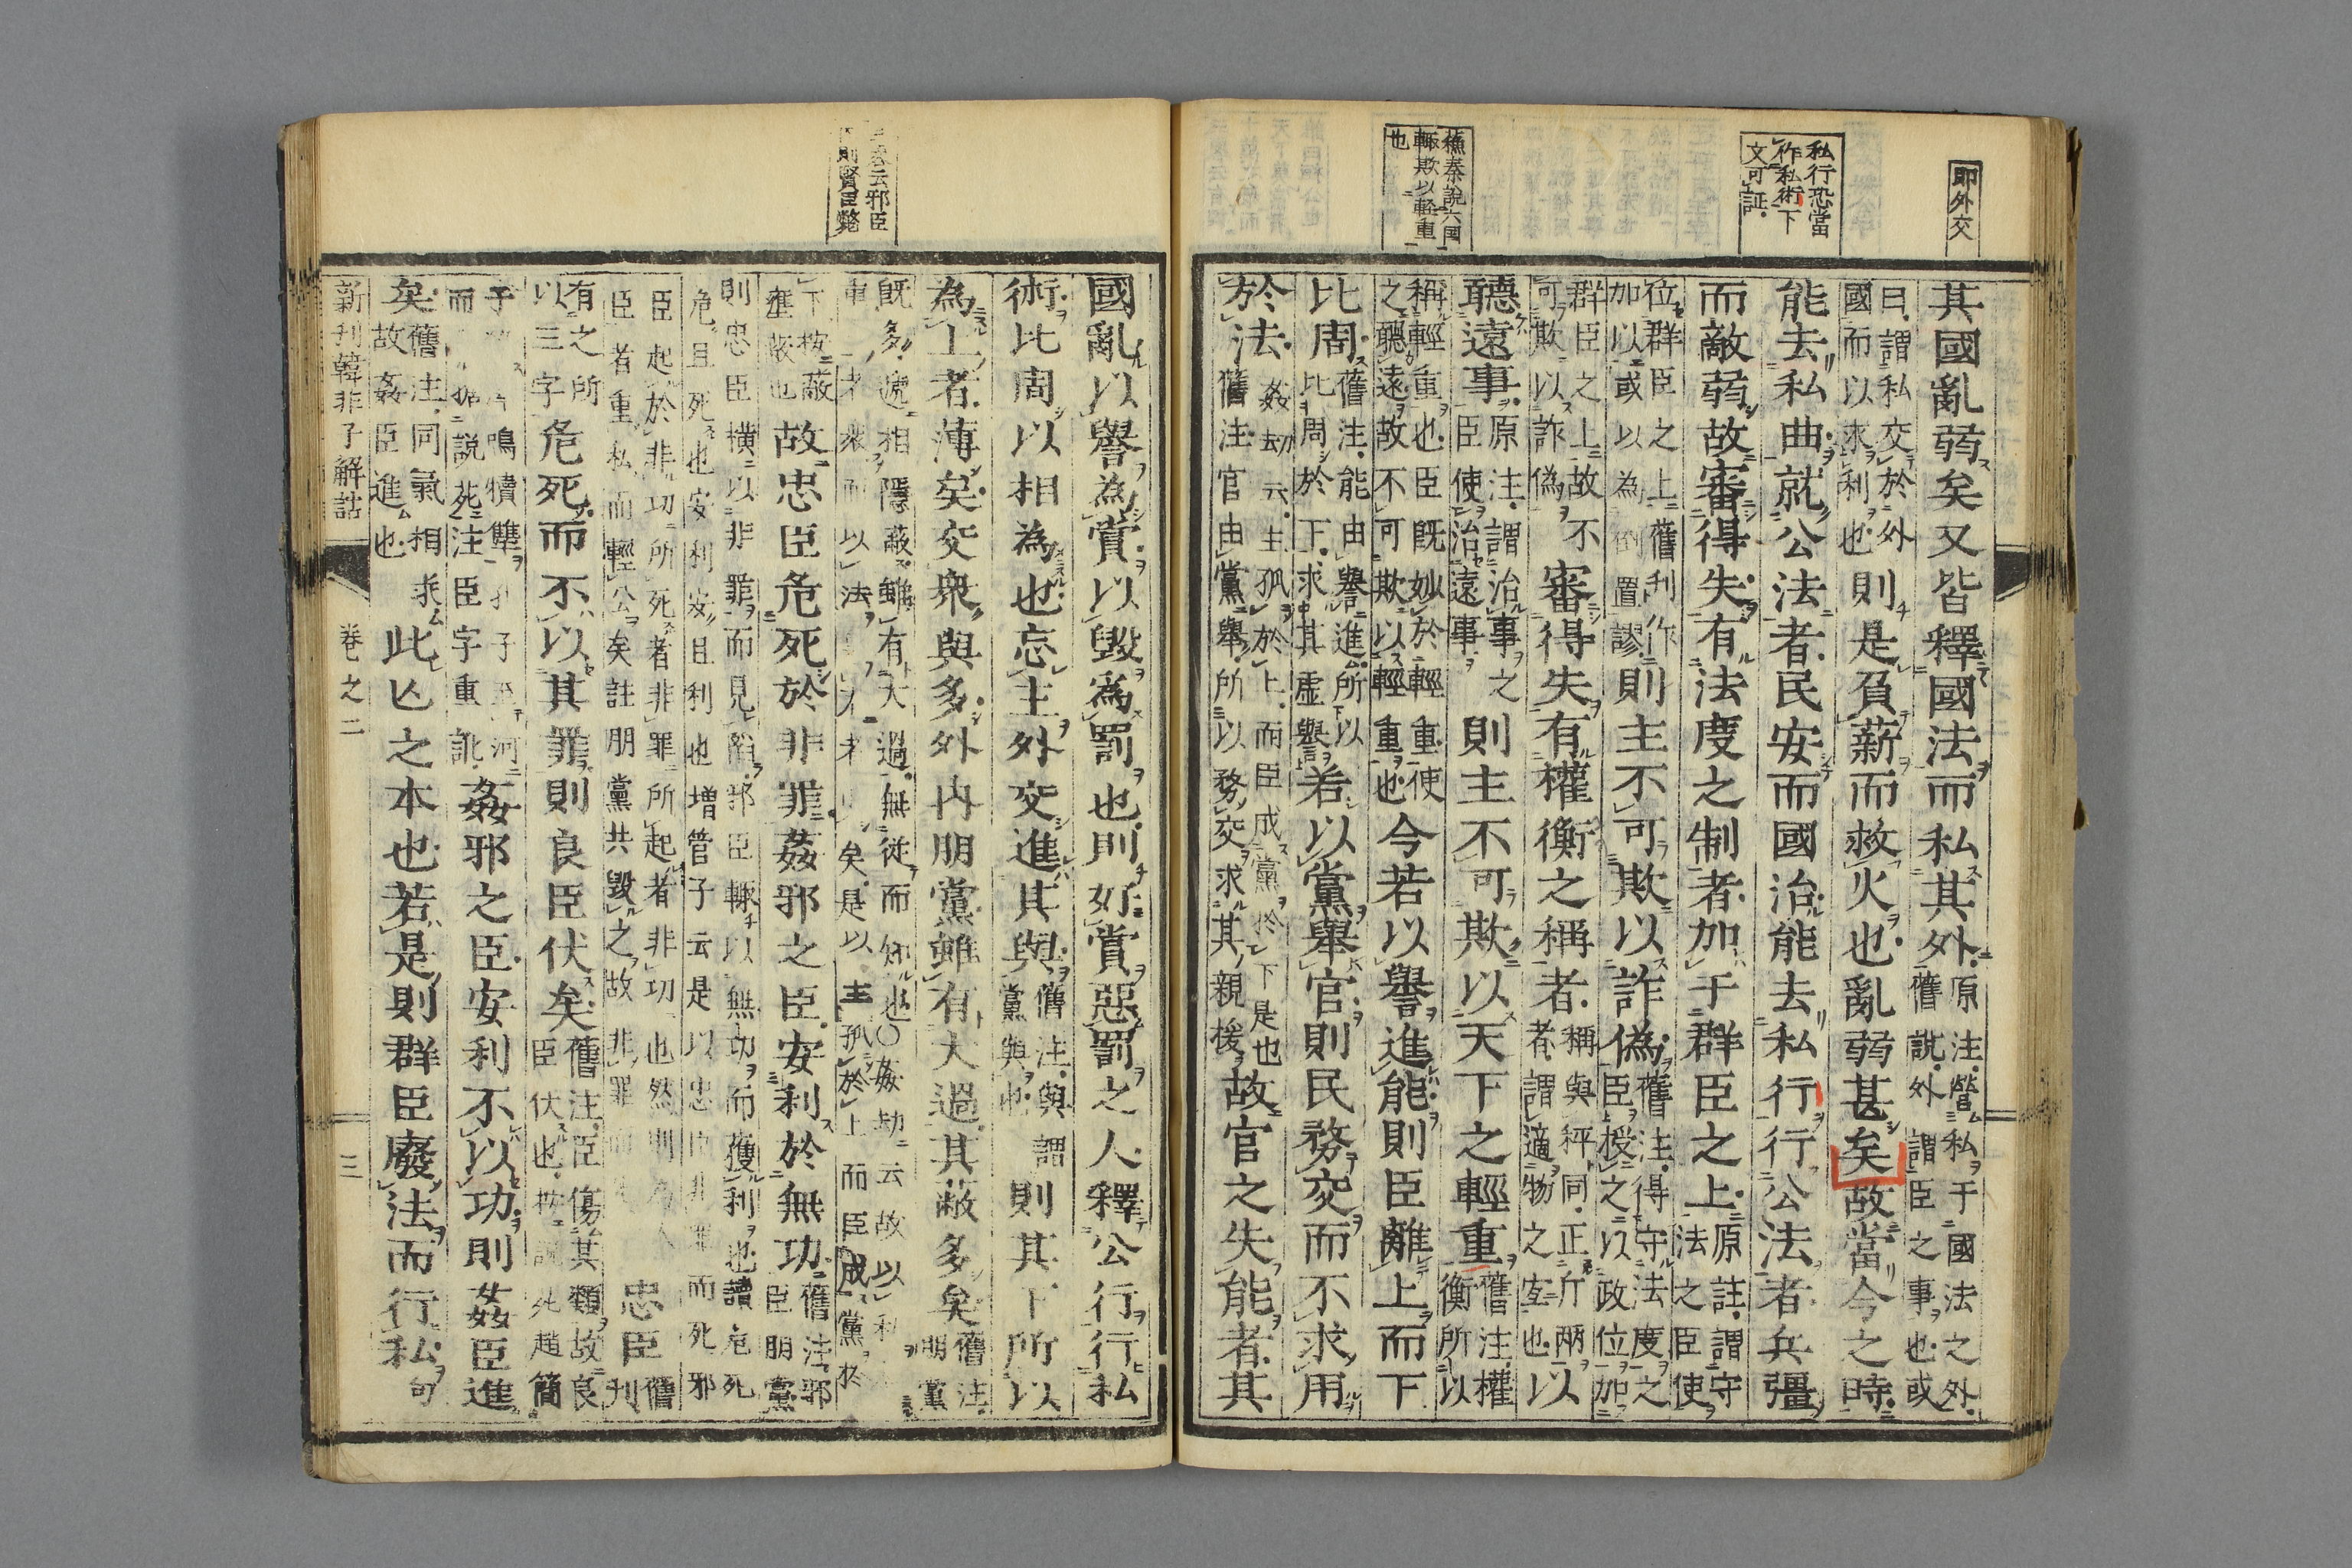 即外交
私行恐當
作私術下
文可証
蘓秦說六國
輙欺以軽重
也
其國亂弱矣又皆釋國法而私其外原注營私于國法之外舊說外謂臣之事也或
曰謂私交於外國而以求利也則是負薪而救火也亂弱甚矣故當今之時
能去私曲就公法者民安而國治能去私行行公法者兵彊
而敵弱故審得失有法度之制者加于群臣之上原註謂守法之臣使
位群臣之上舊利作加以或以為倒置謬則主不可欺以詐偽舊注得守法度之臣授之以政位加之
群臣之上故不可欺以詐偽審得失有權衡之稱者稱與秤同正斤兩者謂適物之宜也以
聽遠事原注謂治事之臣使治遠事則主不可欺以天下之輕重舊注權衡所以
稱輕重也臣既妙於輕重使之聽遠故不可欺以輕重也今若以譽進能則臣離上而下
比周舊注能由譽進所以比周於下求其虛譽若以黨舉官則民務交而不求用
於法姦劫云主孤於上而臣成黨於下是也舊注官由黨舉所以務交求其親援故官之失能者其
則賢臣斃
國亂以譽為賞以毀為罰也則好賞惡罰之人釋公行行私
術比周以相為也忘主外交進其與舊注與謂黨與也則其下所以
為上者薄矣交衆與多外內朋黨雖有大過其蔽多矣舊注朋黨
既多遞相隱蔽雖有大過無從而知也〇姦劫云故以法矣是以主孤於上而臣成黨於
下按蔽壅蔽也故忠臣危死於非罪姦邪之臣安利於無功舊注邪臣朋黨
則忠臣橫以非罪而見陷邪臣輙以無功而獲利也讀危死危且死也安利安且利也增管子云是以忠臣死非罪而死邪
臣起於非功所死者非罪所起者非功也然則為人臣者重私而輕公矣註朋黨共毀之故非罪忠臣舊刊
有之所以三字危死而不以其罪則良臣伏矣舊注臣傷其類故良臣伏也按說苑趙簡
子鳴犢犨孔子至河而說苑注臣字重訛姦邪之臣安利不以功則姦臣進
矣舊注同氣相求故姦臣進也此亾之本也若是則群臣廢法而行私句
新刊韓非子解詁 卷之二 三